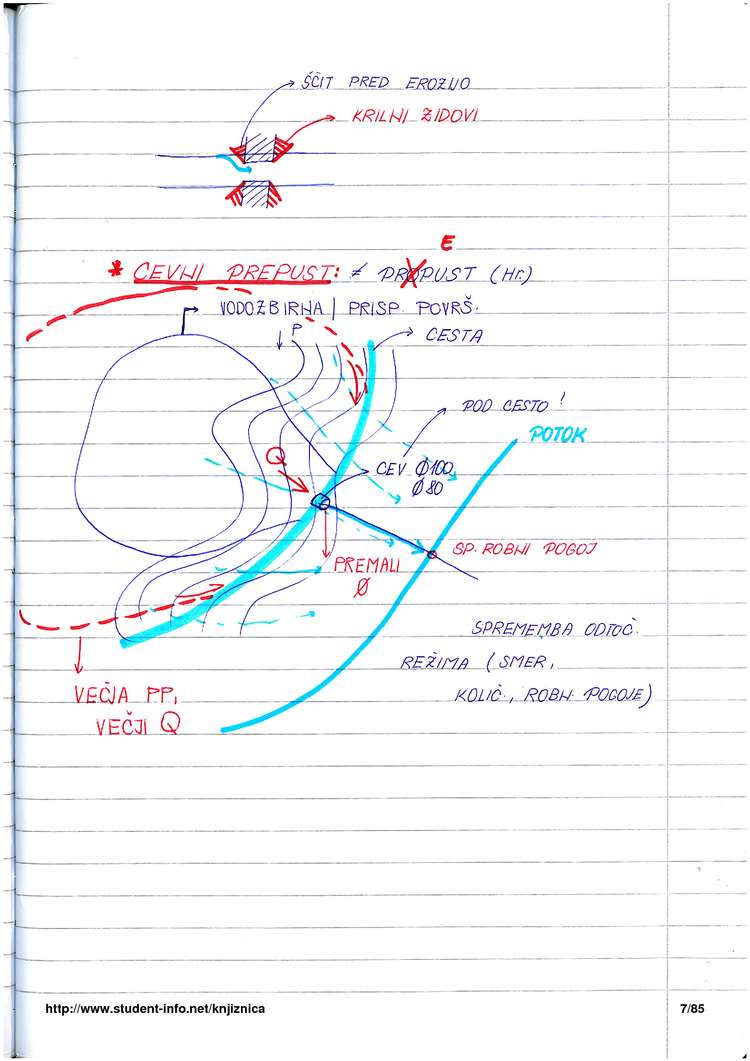 ŠČIT PRED EROZIJO
KRILNI ZIDOVI
E
* CEVNI PREPUST: ≠ PROPUST (Hr.)
VODOZBIRNA | PRISP. POVRŠ.
P
CESTA
POD CESTO!
POTOK
Q
CEV Ø100
Ø80
SP. ROBNI POGOJ
PREMALI
Ø
SPREMEMBA ODTOČ.
REŽIMA (SMER,
KOLIČ., ROBN. POGOJE)
VEČJA PP,
VEČJI Q
http://www.student-info.net/knjiznica
7/85